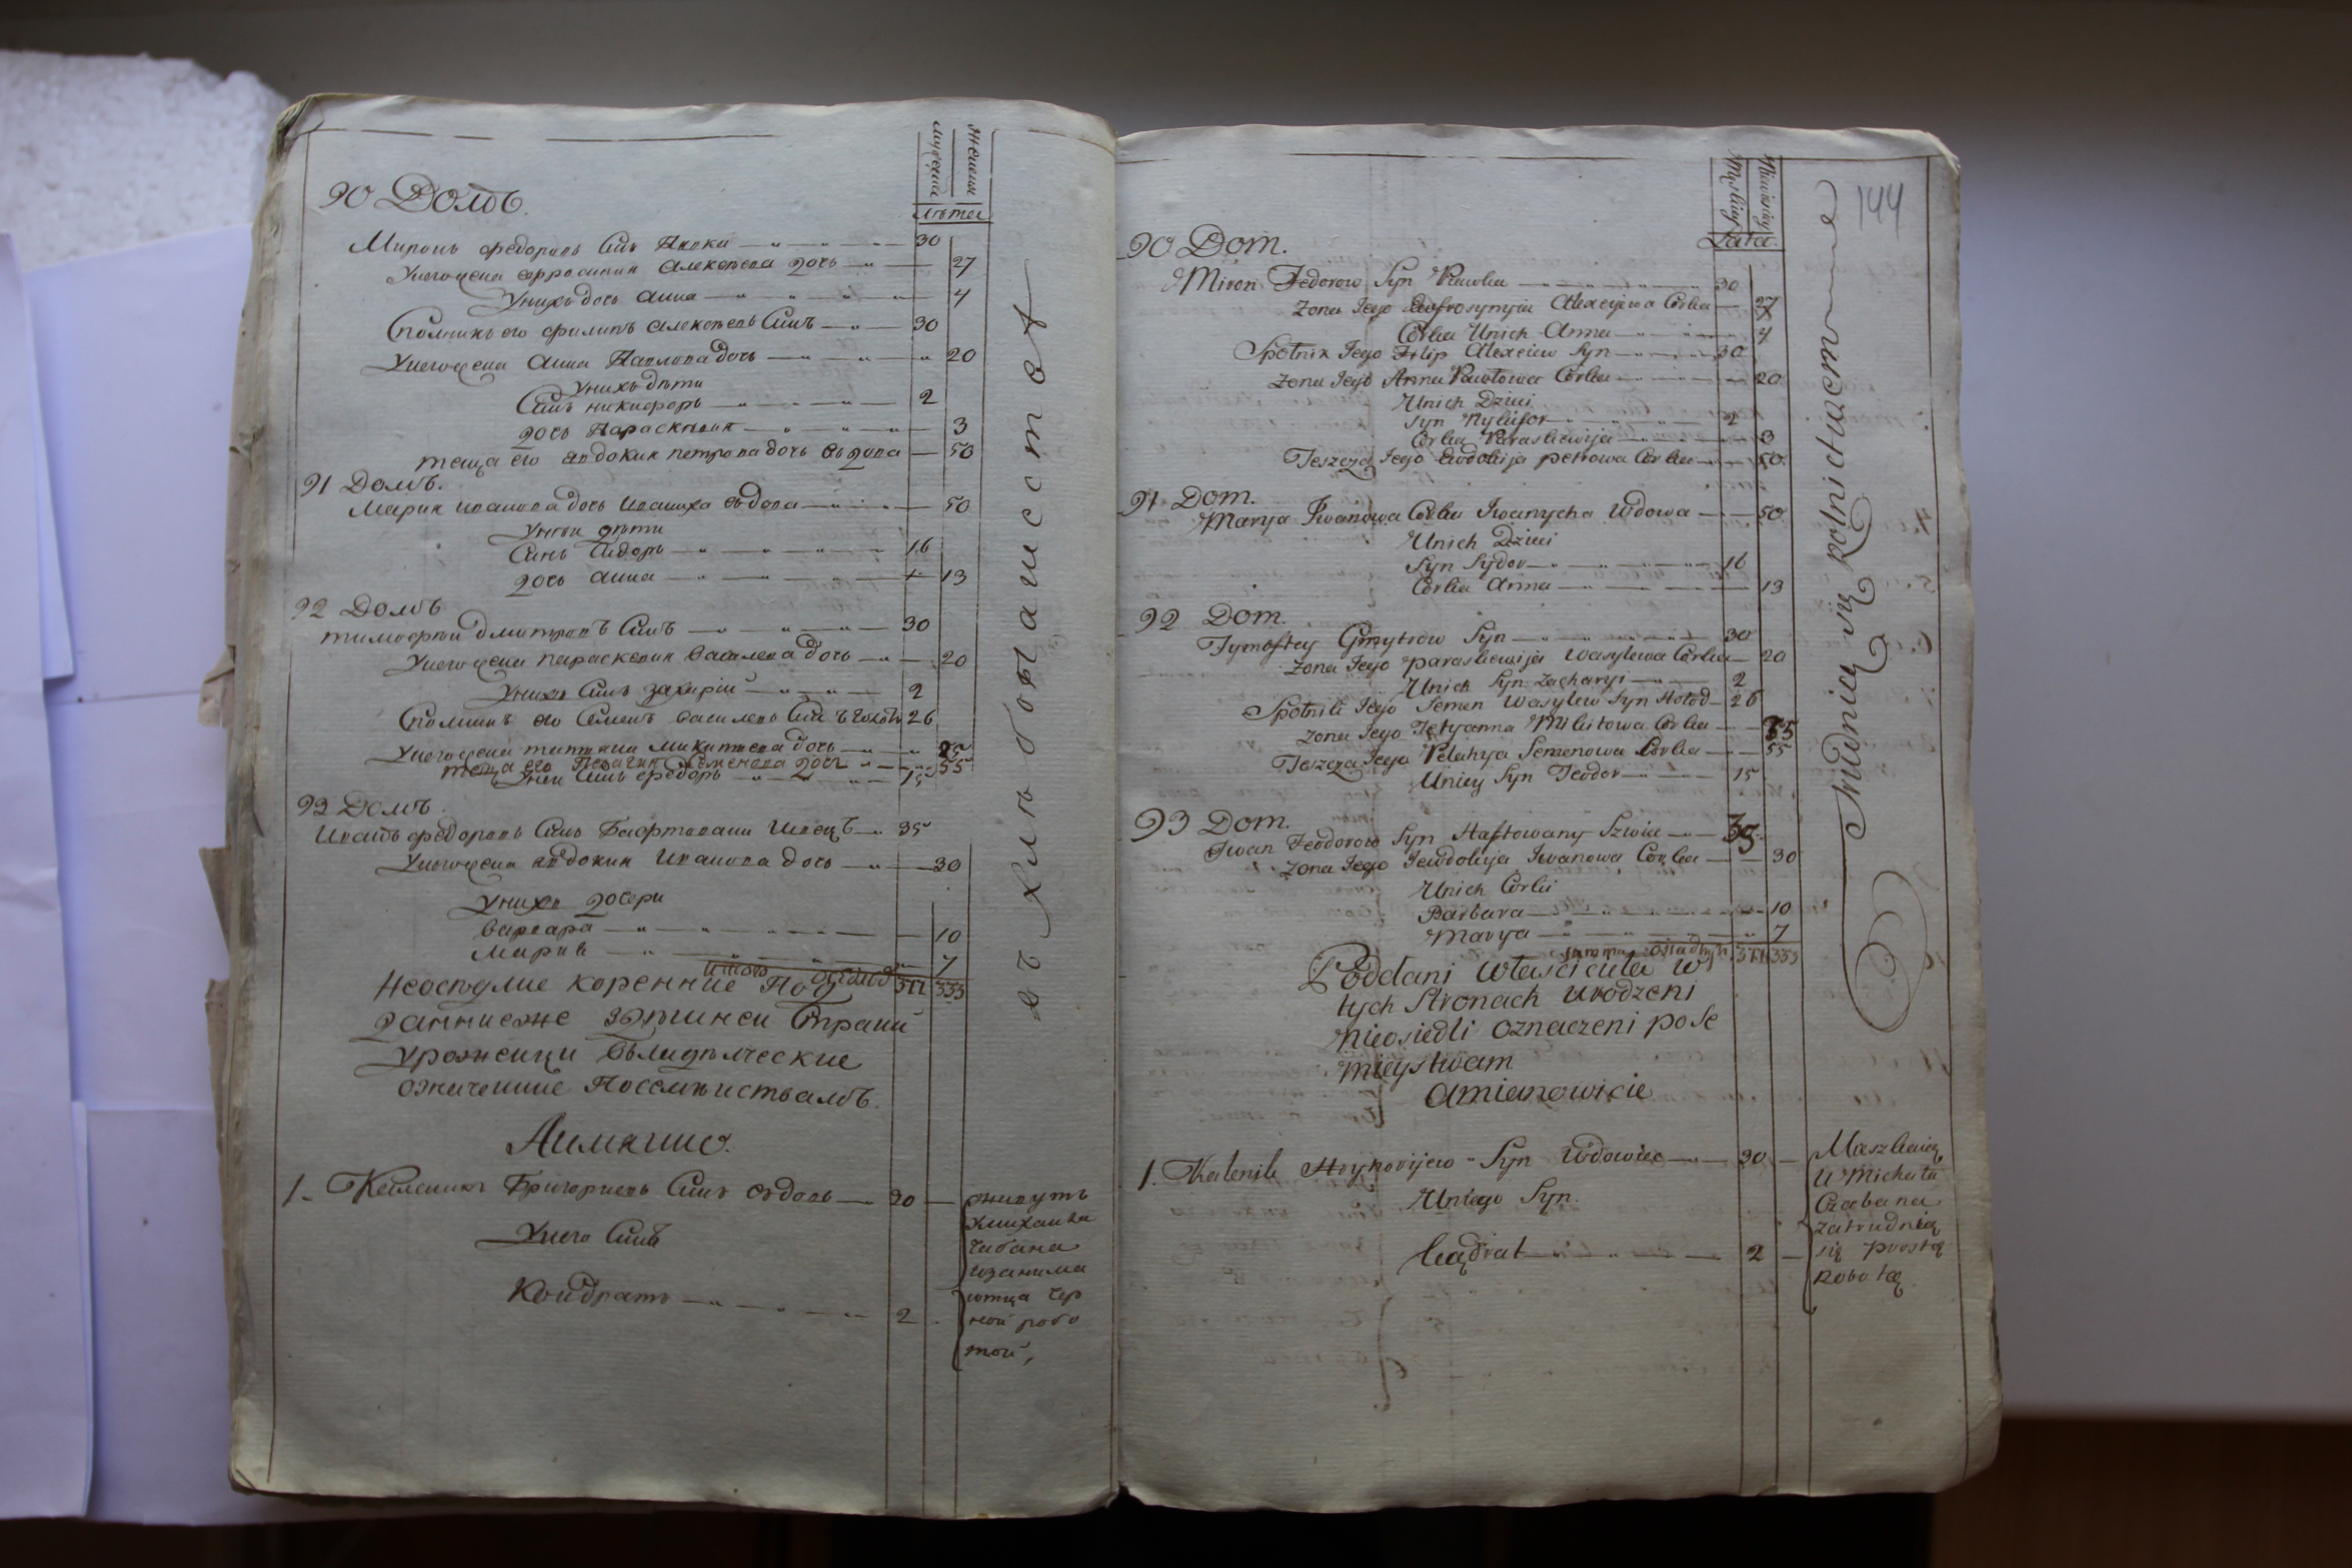 мужеска
женска
лѣта
90 Домъ.
Миронъ федоровъ Синъ Павка 30
Унегожена евфросиния Алексѣева дочь 27
Унихъ дочь Анна 4
Сполникъ его филипъ Алексѣевъ Синъ 30
Унегожена Анна Павлова дочь 20
Унихъ дѣти
Синъ никифоръ 2
дочь Параскевия 3
теща его Авдокия петрова дочь вьдова 50
91 Домъ.
Мария иванова дочь иваниха вьдова 50
Унеи дѣти
Синъ Сидоръ 16
дочь Анна 13
92 Домъ
тимофѣй дмитровъ Синъ 30
Унегожена параскевия василева дочь 20
Унихъ Синъ захарій 2
Сполникъ его Семенъ василевъ Синъ 26
Унегожена татияна микитиева дочь 25
теща его Пелагия Семенова дочь 55
Унеи Синъ федоръ 15
93 Домъ
Иванъ федоровъ Синъ Гафтовани Швецъ 35
Унегожена Авдокия Иванова дочь 30
Унихъ дочери
варвара 10
Мария 7
итого 333
Неоседлие коренние Под
даннеже здешнеи Страни
урожении владелческие
означение Поселниствамъ.
Аимянно.
1. Каленикъ Григориевъ Синъ вдовъ 30
Унего Синъ
Кондратъ 2
живутъ
Умихаила
Чабана
изанима
ютца чер
ной робо
той,
вь хлѣбопашестве
144
Męskiey
Niewieściey
Lata.
90 Dom.
Miron Fedorow Syn Pawka 30
Zona Jego Eufrosynyia Alexeyiwa Corka 27
Corka Unich Anna 4
Społnik Jego Filip Alexeiew Syn 30
Zona Jego Anna Pawłowa Corka 20
Unich Dzieci
Syn Nykifor 2
Corka Paraskewija 3
Teszcza Jego Ewdokija petrowa Corka 50.
91 Dom.
Marya Iwanowa Corka Iwanycha Wdowa 50
Unich Dzieci
Syn Sydor 16
Corka Anna 13
92 Dom.
Tymoftey Gmytrow Syn 30
Zona Jego paraskewija Wasylewa Corka 20
Unich Syn Zacharyi 2
Społnik Jego Semen Wasylew Syn Hołod 26
Zona Jego Tetyanna Mikitowa Corka 35
Teszcza Jego Pelahya Semenowa Corka 55
Uniey Syn Feodor 15
93 Dom.
Iwan Feodorow Syn Haftowany Szwiec 35
Zona Jego Jewdokija Iwanowa Corka 30
Unich Corki
Barbara 10
Marya 7
summa osiadłych 333
Poddani właściciela w
tych Stronach urodzeni
nieosiedli oznaczeni po Se
mieystwam
Amianowicie
1. Kalenik Hryhorijew Syn Wdowiec 30
Uniego Syn.
Kądrat 2
Mieszkaią
U Michała
Czabana
zatrudnią
się prostą
Robotą.
Trudnicą się rolnictwem